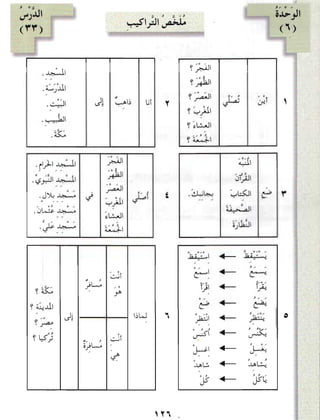 الوَحْدَةُ
(٦)
مُلَخَّصُ التَّرَاكِيبِ
الدَّرْسُ
(٣٣)
١
أَيْنَ
تُصَلِّي
الفَجْرَ ؟
الظُّهْرَ ؟
العَصْرَ ؟
المَغْرِبَ ؟
العِشَاءَ ؟
الجُمُعَةَ ؟
٢
أَنَا
ذَاهِبٌ
إِلَى
المَسْجِدِ .
المَدْرَسَةِ .
البَيْتِ .
الطَّبِيبِ .
مَكَّةَ .
٣
ضَعِ
المُنَبِّهَ
القُرْآنَ
الكِتَابَ
الصَّحِيفَةَ
النَّظَّارَةَ
بِجَانِبِكَ .
٤
أُصَلِّي
الفَجْرَ
الظُّهْرَ
العَصْرَ
المَغْرِبَ
العِشَاءَ
الجُمُعَةَ
فِي
المَسْجِدِ الحَرَامِ .
المَسْجِدِ النَّبَوِيِّ .
مَسْجِدِ بِلَالٍ .
مَسْجِدِ عُثْمَانَ .
مَسْجِدِ عَلِيٍّ .
٥
يَسْتَيْقِظُ ← اسْتَيْقِظْ
يَسْمَعُ ← اسْمَعْ
يَقْرَأُ ← اقْرَأْ
يَضَعُ ← ضَعْ
يَنْتَظِرُ ← انْتَظِرْ
يَكْنُسُ ← اكْنُسْ
يَغْسِلُ ← اغْسِلْ
يُشَاهِدُ ← شَاهِدْ
يَأْكُلُ ← كُلْ
٦
لِمَاذَا
أَنْتَ
هُوَ
مُسَافِرٌ
أَنْتِ
هِيَ
مُسَافِرَةٌ
إِلَى
مَكَّةَ ؟
المَدِينَةِ ؟
مِصْرَ ؟
تُرْكِيَا ؟
١٢٦